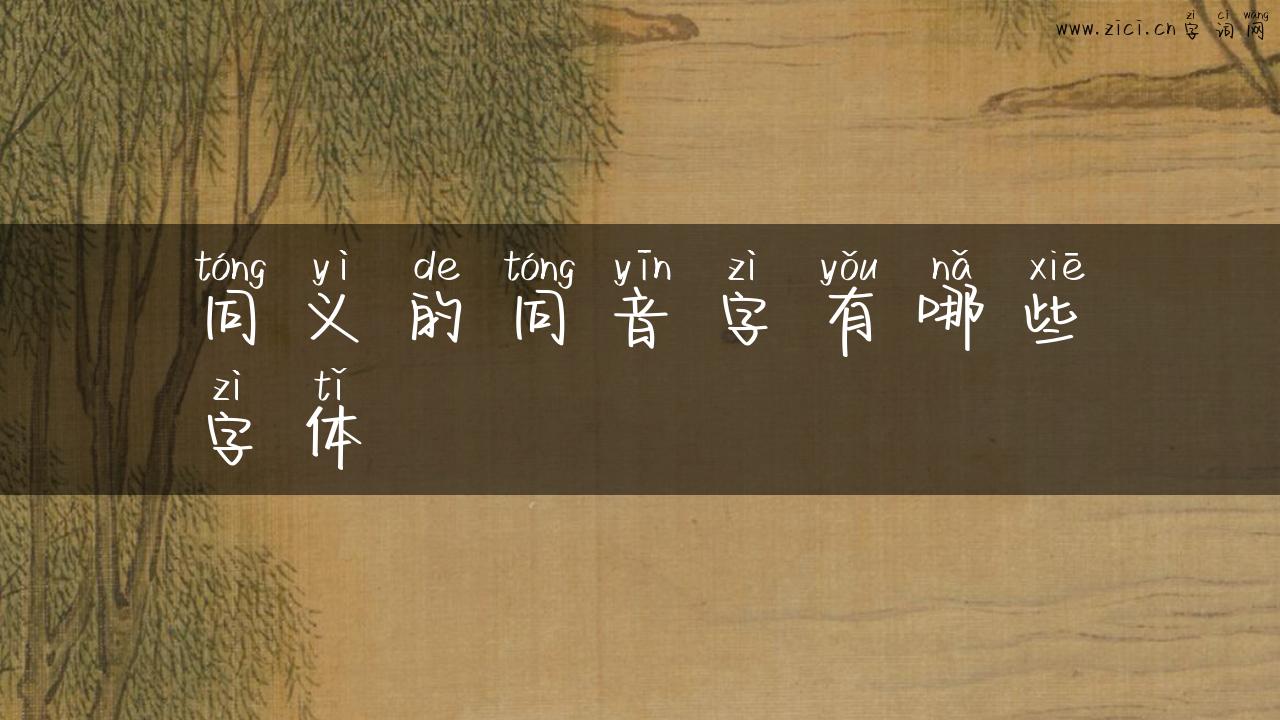 zì cí wǎng
www.zici.cn 字词网
tóng yì de tóng yīn zì yǒu nǎ xiē
同义的同音字有哪些
zì tǐ
字体